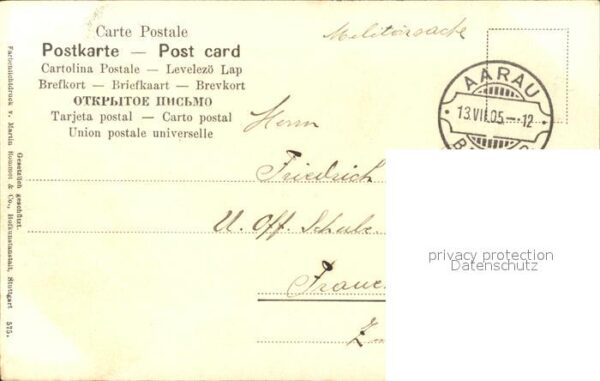 Carte Postale
Postkarte — Post card
Cartolina Postale — Levelező Lap
Brefkort — Briefkaart — Brevkort
ОТКРЫТОЕ ПИСЬМО
Tarjeta postal — Carto postal
Union postale universelle
Militärsache
AARAU
13.VII.05.–12
Herrn
Friedrich
U. Off. Schule
Frauen
privacy protection
Datenschutz
Gesetzlich geschützt.
Farbenlichtdruck v. Martin Rommel & Co., Hofkunstanstalt, Stuttgart 575.